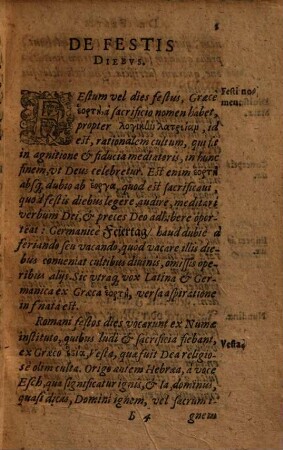 8
DE FESTIS
DIEBVS.
FEstum vel dies festus, Græcè
ἑορτὴ à sacrificio nomen habet,
propter λογικὴν λατρείαν, id
est, rationalem cultum, qui sit
in agnitione & fiducia mediatoris, in hunc
finem, vt Deus celebretur. Est enim ἑορτὴ
absq; dubio ab ἔοργα, quod est sacrificaui,
quòd festis diebus legere, audire, meditari
verbum Dei, & preces Deo adhibere opor-
teat: Germanicè Feiertag/ haud dubiè à
feriando seu vacando, quòd vacare illis die-
bus conueniat cultibus diuinis, omissis ope-
ribus alijs. Sic vtraq; vox Latina & Ger-
manica ex Græca ἑορτὴ, versa aspiratione
in f nata est.
Romani festos dies vocarunt ex Numæ
instituto, quibus ludi & sacrificia fiebant,
ex Græco Vesta, quæ fuit Dea religio-
sè olim culta. Origo autem Hebræa, à voce
Esch, qua significatur ignis, & Ia, dominus,
quasi dicas, Domini ignem, vel sacrum i-
b 4
gnem
Festi no-
men.
Vesta.